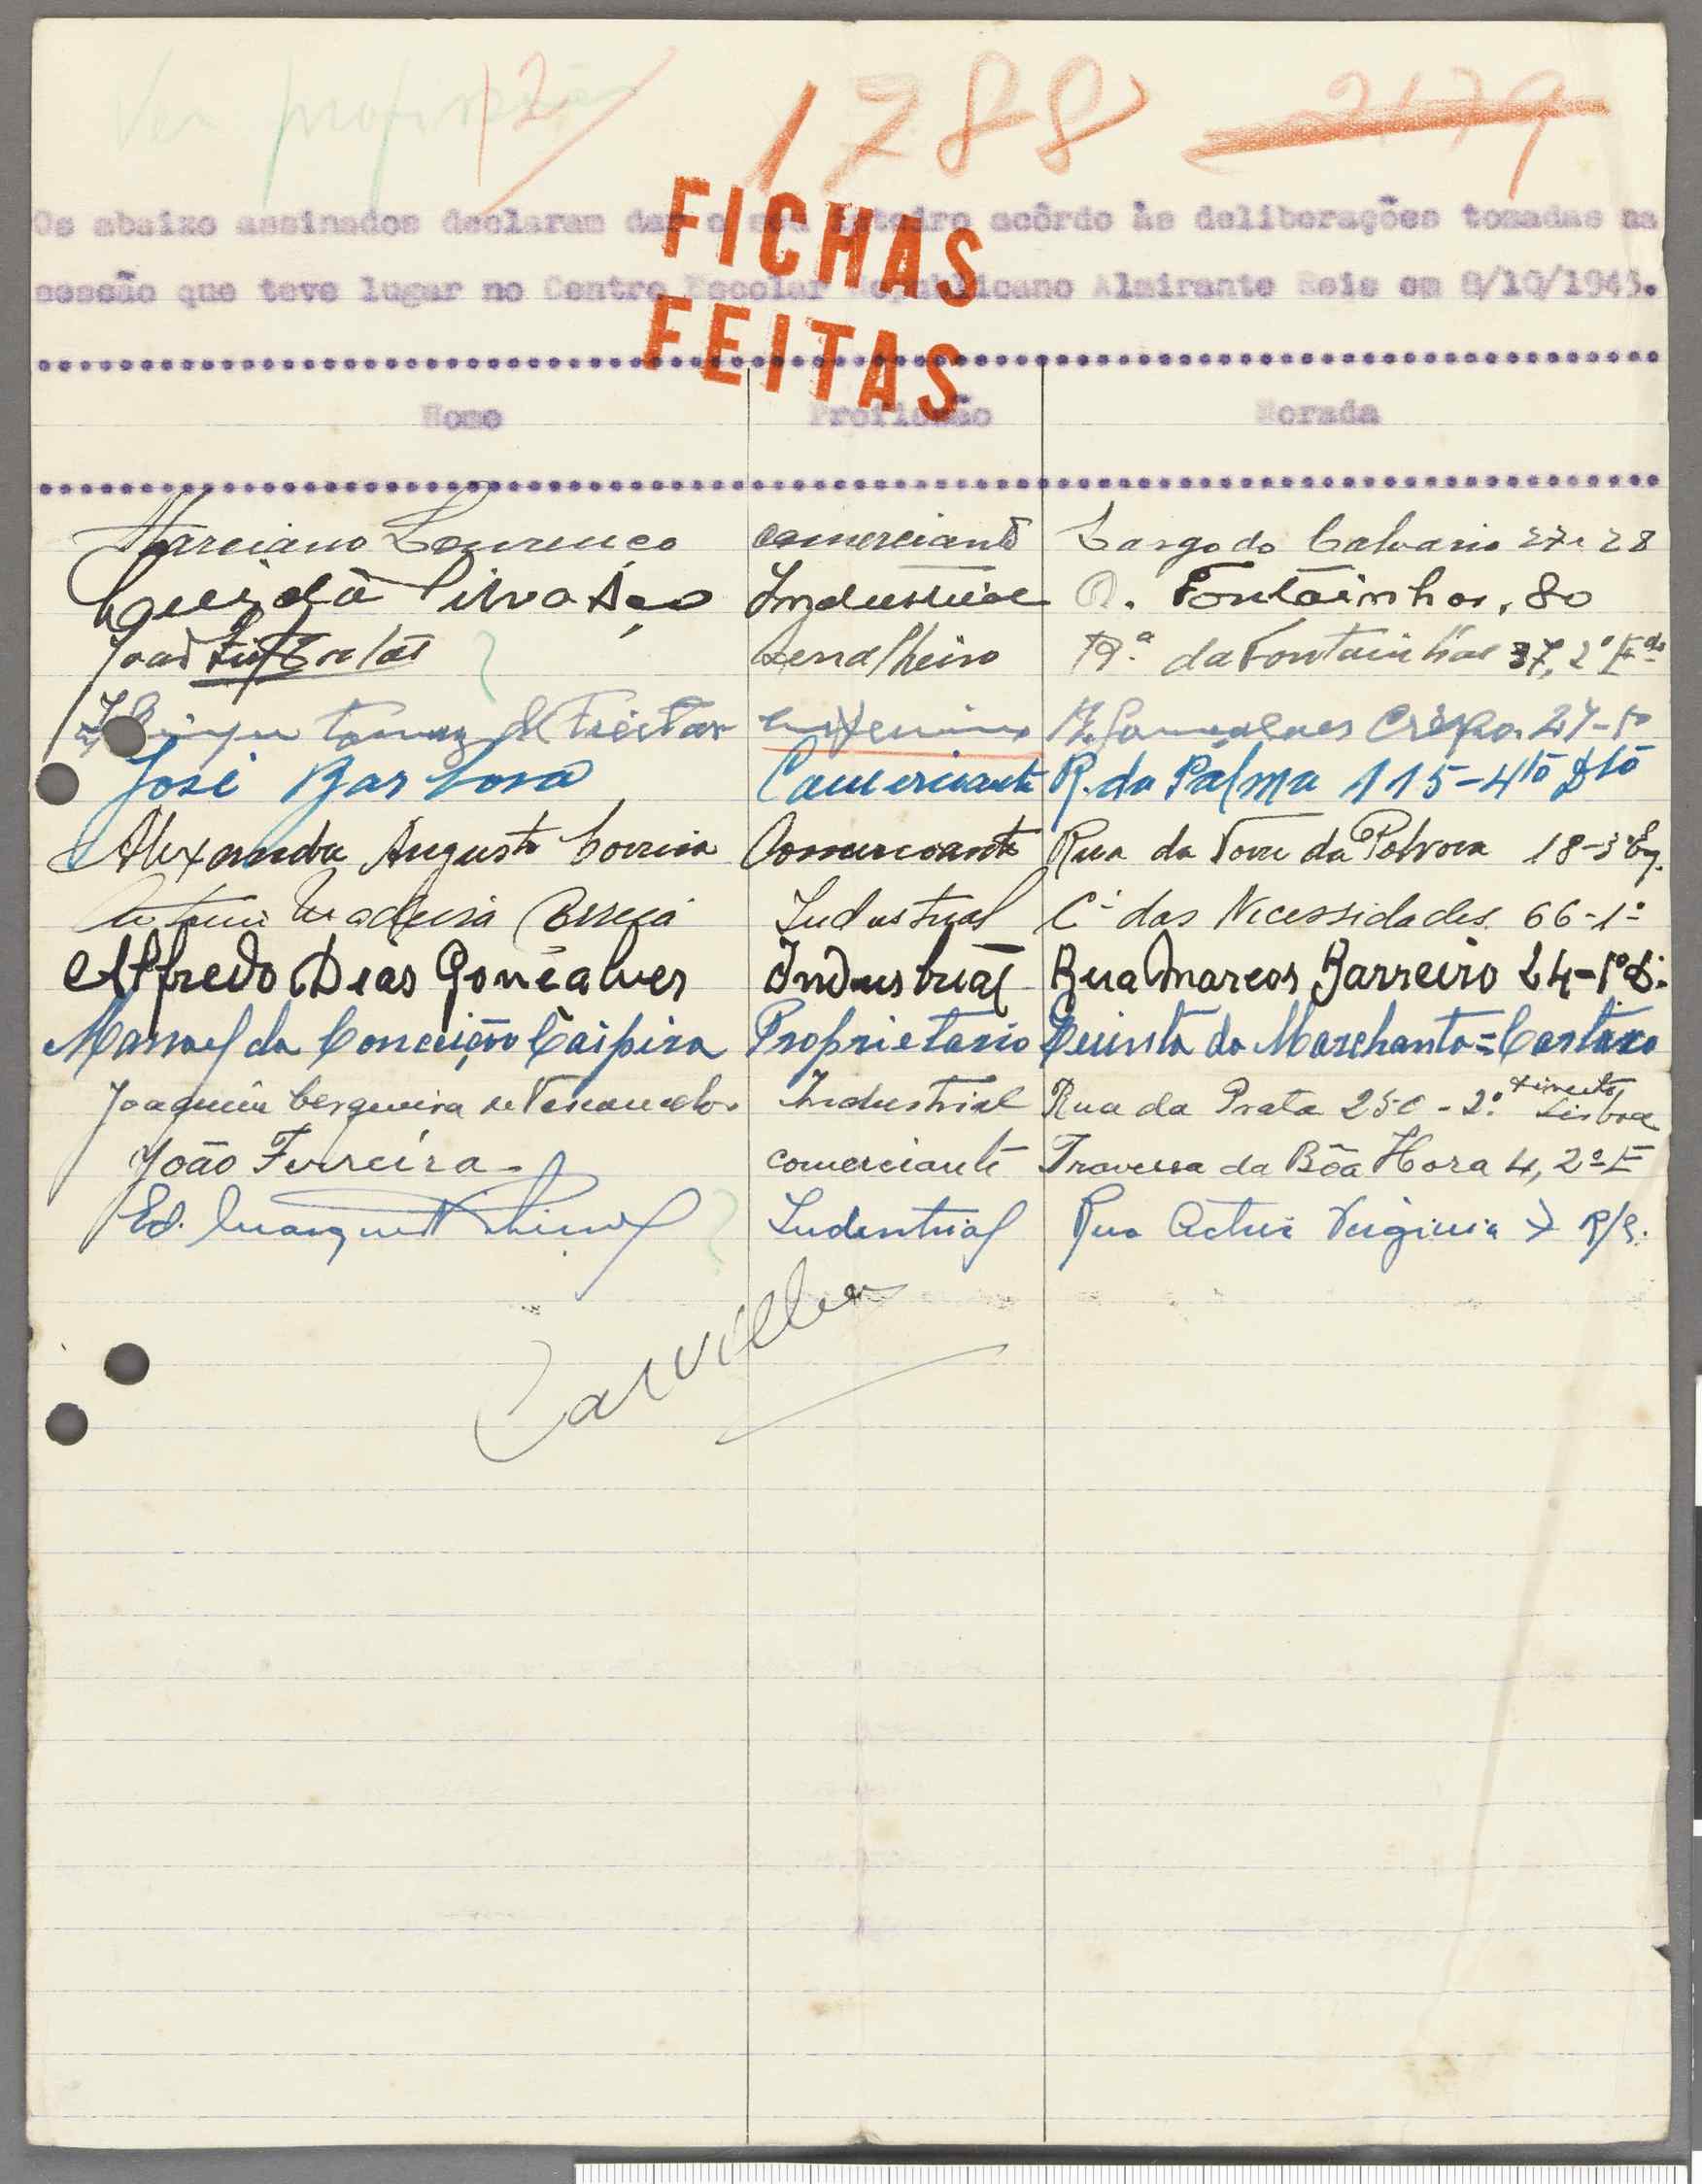 Ver profissões
12
1788 2179
Os abaixo assinados declaram dar o seu inteiro acôrdo às deliberações tomadas na
FICHAS
sessão que teve lugar no Centro Escolar Republicano Almirante Reis em 8/10/1945.
FEITAS
Nome Profissão Morada
Marciano Lourenço comerciante Largo do Calvario 27 e 28
Luís da Silva Industrial R. Fontainhas, 80
João Serralheiro R.ª da Fontainhas 37, 2º
Tomaz de Freitas R. Gonçalves Crespo 27-1º
José Barbosa Comerciante R. da Palma 115-4tº Dtº
Alexandre Augusto Correia Comerciante Rua da Torre da Polvora 18-3º Eq.
Antonio Madeira Industrial Cª das Necessidades 66-1º
Alfredo Dias Gonçalves Industrial Rua Marcos Barreiro 24-1º D.
Manoel da Conceição Caipira Proprietario Quinta da Marchanta = Cartaxo
Joaquim Cerqueira de Vasconcelos Industrial Rua da Prata 250-2º direito Lisboa
João Ferreira comerciante Travessa da Bôa Hora 4, 2º E
Ed. Marques Industrial Rua Actriz Virginia R/C.